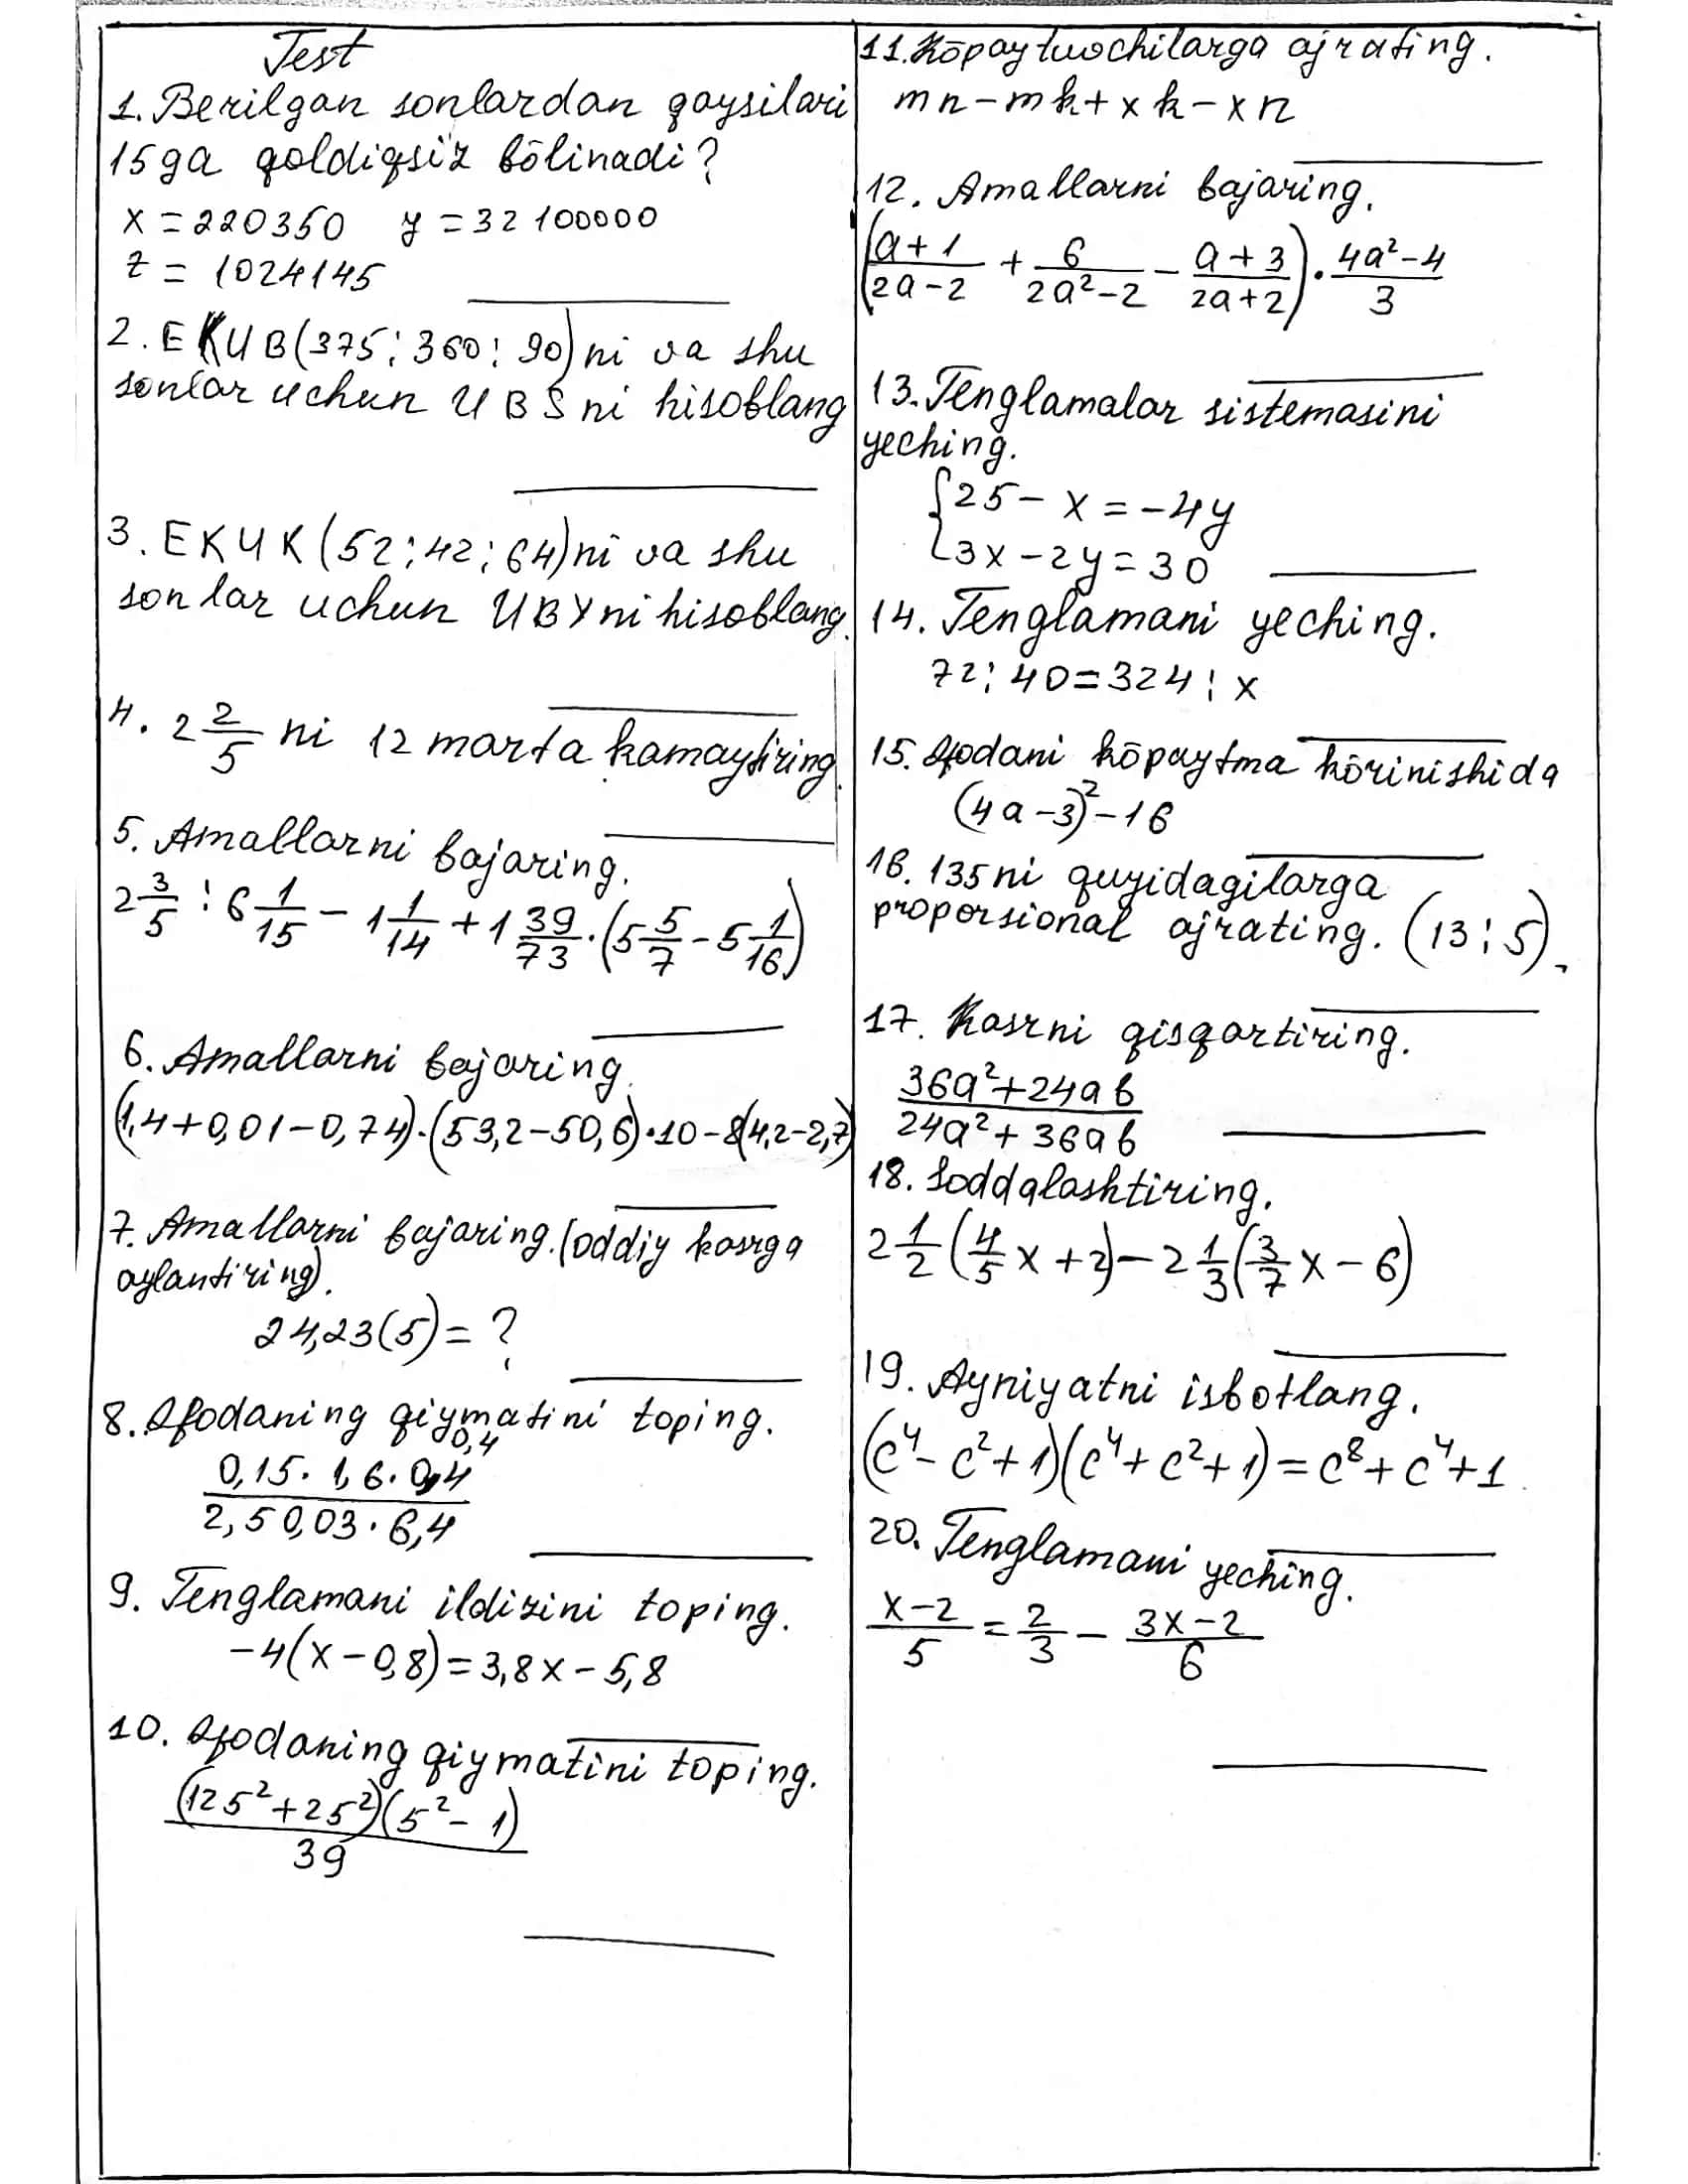 Test
1. Berilgan sonlardan qaysilari
15 ga qoldiqsiz bōlinadi?
x = 220350 y = 32 100000
z = 1024145
2. EKUB(375; 360; 90) ni va shu
sonlar uchun UBSni hisoblang
3. EKUK(52; 42; 64) ni va shu
sonlar uchun UBYni hisoblang.
4. 2 2/5 ni 12 marta kamaytiring.
5. Amallarni bajaring.
2 3/5 : 6 1/15 - 1 1/14 + 1 39/73 · (5 5/7 - 5 1/16)
6. Amallarni bajaring.
(1,4+0,01-0,74)·(53,2-50,6)·10-8(4,2-2,7)
7. Amallarni bajaring. (oddiy kasrga
aylantiring).
24,23(5) = ?
8. Ifodaning qiymatini toping.
0,4
0,15 · 1,6 · 0,4
2,5 0,03 · 6,4
9. Tenglamani ildizini toping.
-4(x-0,8) = 3,8x - 5,8
10. Ifodaning qiymatini toping.
(125²+25²)(5²-1)
39
11. Kōpaytuvchilarga ajrating.
mn - mk + xk - xn
12. Amallarni bajaring.
(a+1/2a-2 + 6/2a²-2 - a+3/2a+2) · 4a²-4/3
13. Tenglamalar sistemasini
yeching.
{25 - x = -4y
3x - 2y = 30
14. Tenglamani yeching.
72 : 40 = 324 : x
15. Ifodani kōpaytma kōrinishida
(4a-3)²-16
16. 135 ni quyidagilarga
proporsional ajrating. (13 : 5).
17. Kasrni qisqartiring.
36a²+24ab
24a²+36ab
18. Soddalashtiring.
2 1/2 (4/5 x + 2) - 2 1/3 (3/7 x - 6)
19. Ayniyatni isbotlang.
(c⁴-c²+1)(c⁴+c²+1) = c⁸+c⁴+1
20. Tenglamani yeching.
x-2/5 = 2/3 - 3x-2/6